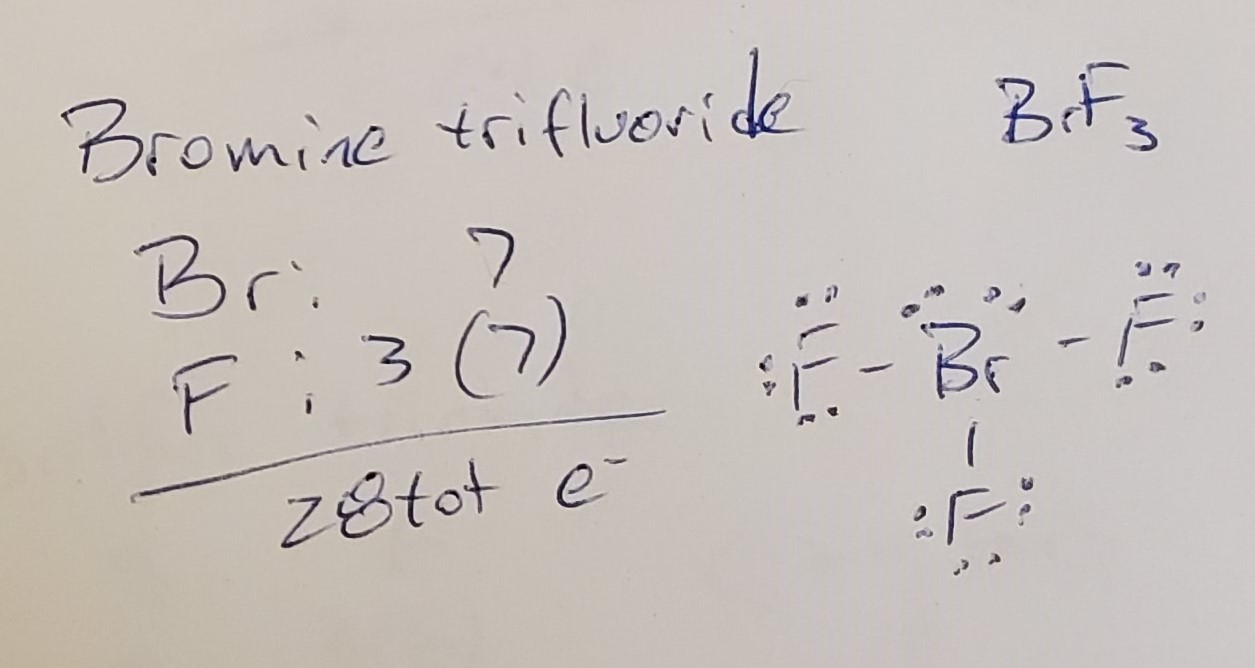 Bromine trifluoride BrF3
Br: 7
F: 3 (7)
28 tot e-
:F - Br - F:
|
:F: